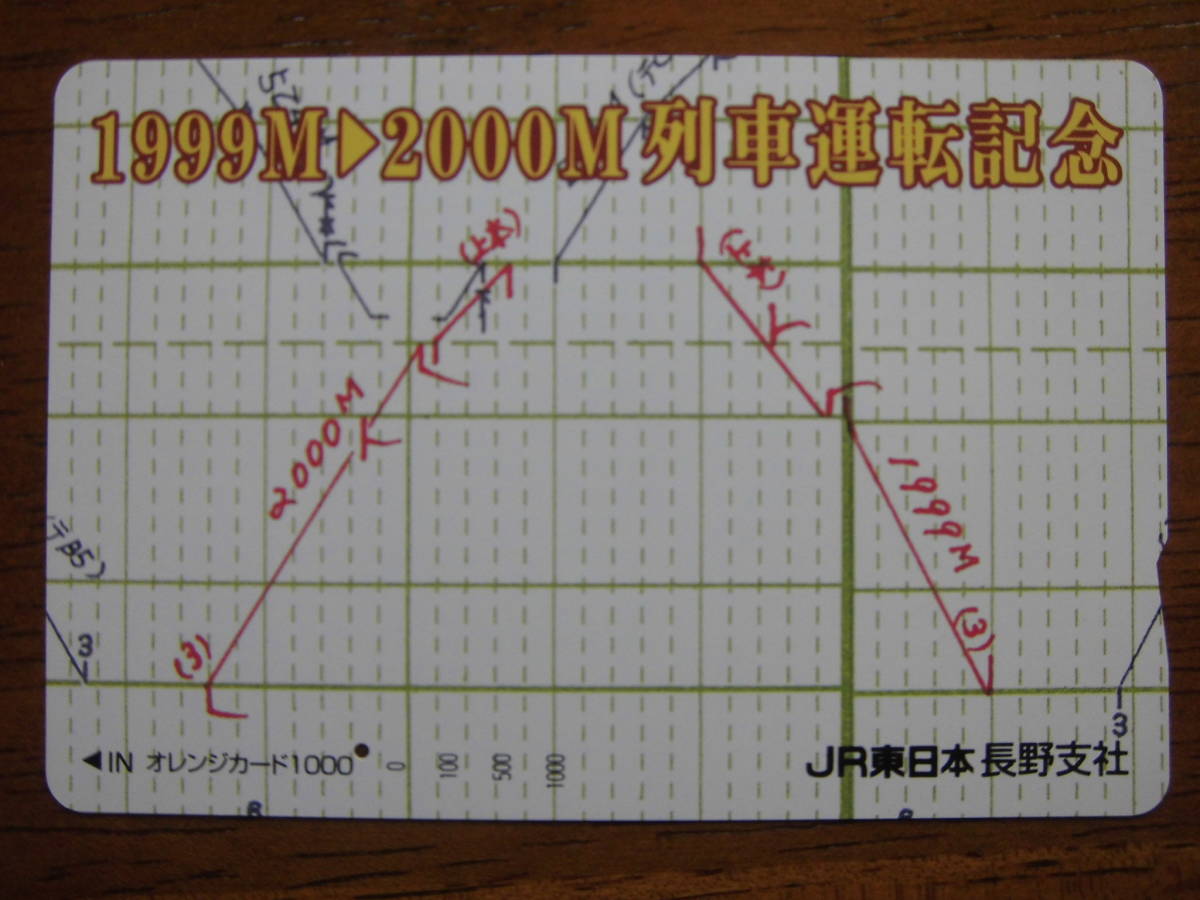 1999M▶2000M 列車運転記念
(上本)
(上本)
2000M
1999M
(テB5)
3
(3)
(3)
3
◀IN オレンジカード1000
0 100 500 1000
JR東日本 長野支社